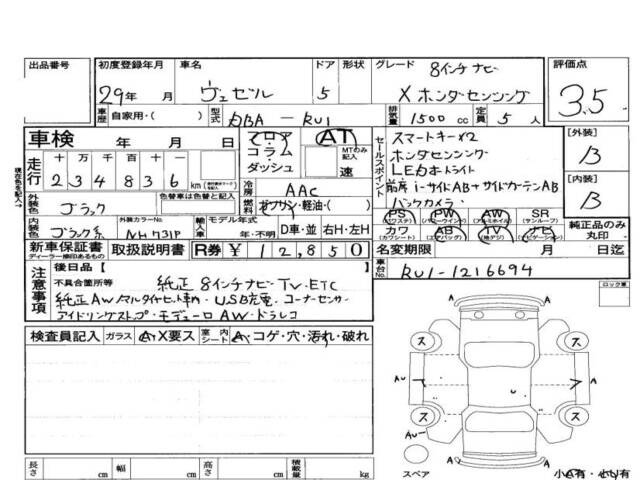 出品番号 初度登録年月 車名 ドア 形状 グレード 8インチナビ 評価点
29年 月 ヴェゼル 5 X ホンダセンシング 3.5
車歴 自家用・( ) 型式 DBA - RU1 排気量 1500 cc 定員 5 人
車検 年 月 日 フロア コラム ダッシュ AT MTのみ記入 速
セールスポイント スマートキー×2 [外装] B
ホンダセンシング
LEDオートライト
前席 i-サイドAB+サイドカーテンAB [内装] B
バックカメラ
現在色を記入
走行 十 万 千 百 十 一
2 3 4 8 3 6 km
冷房 AAC
外装色 ブラック 色替車は色替と記入 燃料 ガソリン・軽油・( )
PS (パワステ) PW (パワーウインドウ) AW (アルミホイル) SR (サンルーフ) 純正品のみ丸印
内装色 ブラック系 外装カラーNo. NH731P 輸入車 モデル年式 年・不明 D車・並 右H・左H
カワ (カワシート) エアB (エアバッグ) TV (地デジ) ナビ (ナビゲーション)
新車保証書 ディーラー捺印あるもの 取扱説明書 R券 ¥ 12,850 名変期限 月 日迄
車台No. RU1-1216694
注意事項 後日品【 】
不具合箇所等 純正 8インチナビ TV. ETC
純正AW ノーマルタイヤセット車内・USB充電 コーナーセンサー
アイドリングストップ・モデューロAW・ドラレコ
ロック車
検査員記入 ガラス A・X要ス 室内シート A・コゲ・穴・汚れ・破れ
A A
ス ス
AU A A
U
ス ス
AU
A A
スペア 小A有・小U有
長さ cm 幅 cm 高さ cm 積載量 kg